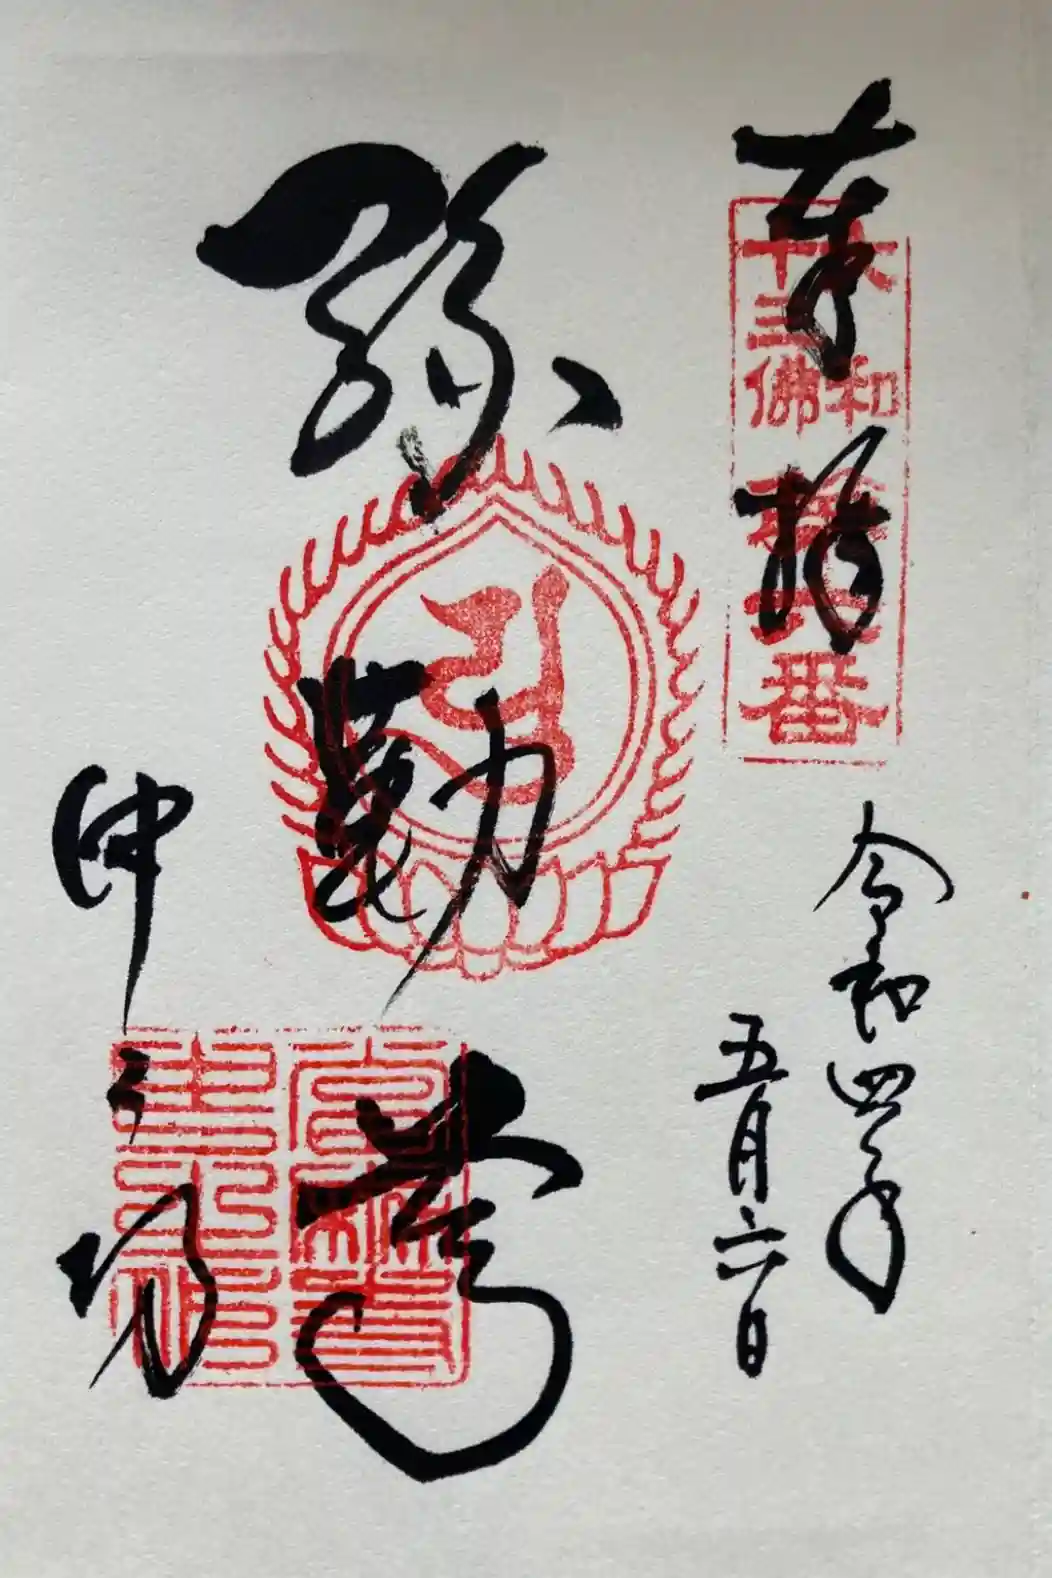 奉拝
大和
十三佛
第六番
令和四年
五月六日
弥勒尊
中之坊